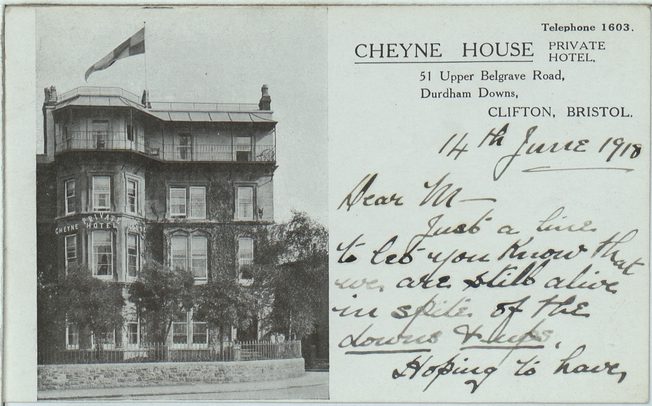 Telephone 1603.
CHEYNE HOUSE PRIVATE HOTEL.
51 Upper Belgrave Road,
Durdham Downs,
CLIFTON, BRISTOL.
14th June 1918
Dear M—
Just a line
to let you know that
we are still alive
in spite of the
downs & ups.
Hoping to have
PRIVATE
CHEYNE HOTEL